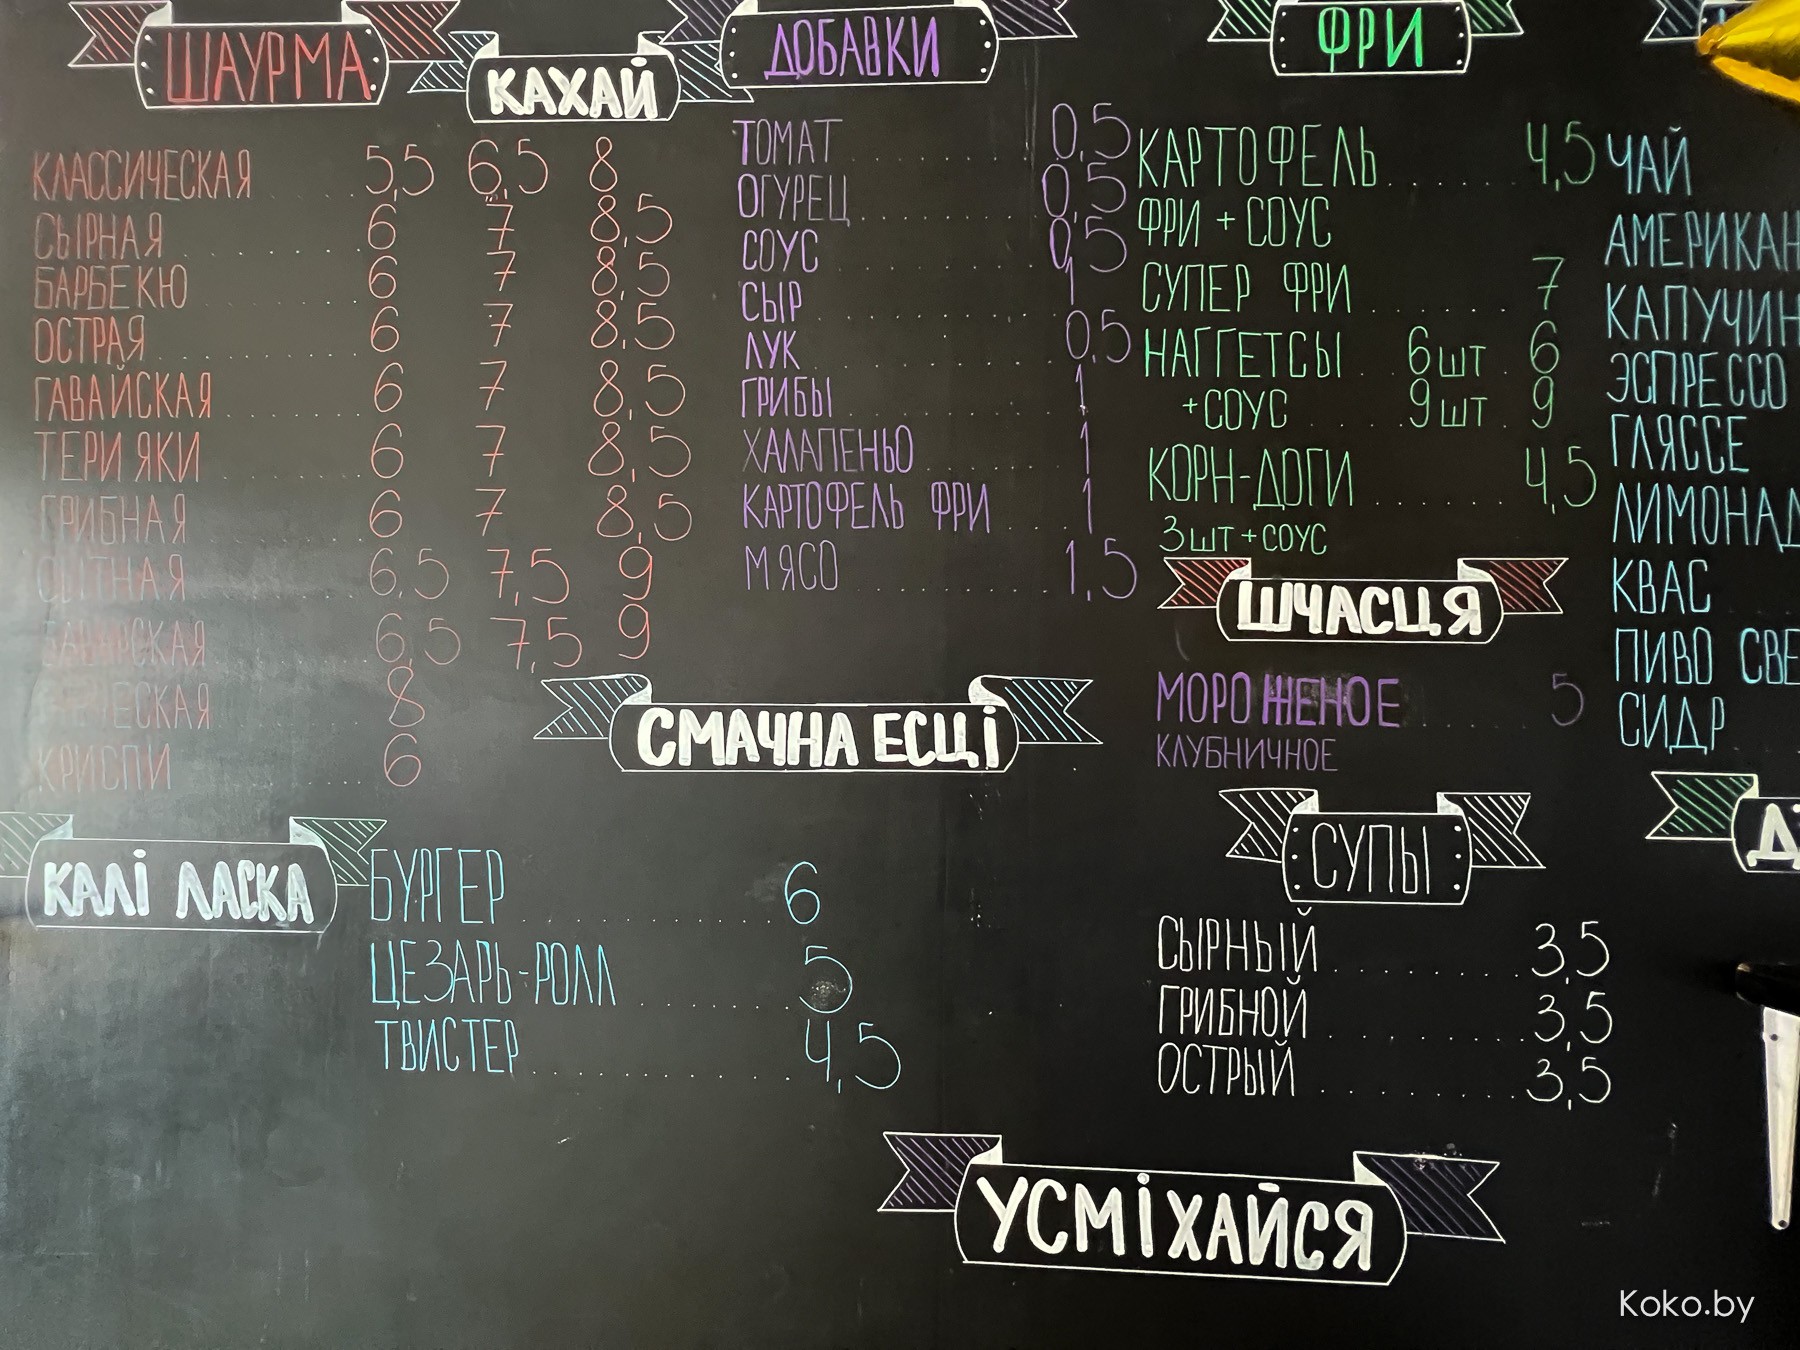 ШАУРМА
КЛАССИЧЕСКАЯ 5,5 6,5 8
СЫРНАЯ 6 7 8,5
БАРБЕКЮ 6 7 8,5
ОСТРАЯ 6 7 8,5
ГАВАЙСКАЯ 6 7 8,5
ТЕРИЯКИ 6 7 8,5
ГРИБНАЯ 6 7 8,5
СЫТНАЯ 6,5 7,5 9
6,5 7,5 9
8
КРИСПИ 6
КАХАЙ
ДОБАВКИ
ТОМАТ 0,5
ОГУРЕЦ 0,5
СОУС 0,5
СЫР 1
ЛУК 0,5
ГРИБЫ 1
ХАЛАПЕНЬО 1
КАРТОФЕЛЬ ФРИ 1
МЯСО 1,5
СМАЧНА ЕСЦІ
КАЛІ ЛАСКА
БУРГЕР 6
ЦЕЗАРЬ-РОЛЛ 5
ТВИСТЕР 4,5
ФРИ
КАРТОФЕЛЬ 4,5
ФРИ + СОУС
СУПЕР ФРИ 7
НАГГЕТСЫ 6 шт 6
+СОУС 9 шт 9
КОРН-ДОГИ 4,5
3 шт + СОУС
ШЧАСЦЯ
МОРОЖЕНОЕ 5
КЛУБНИЧНОЕ
СУПЫ
СЫРНЫЙ 3,5
ГРИБНОЙ 3,5
ОСТРЫЙ 3,5
УСМІХАЙСЯ
ЧАЙ
АМЕРИКАН
КАПУЧИН
ЭСПРЕССО
ГЛЯССЕ
ЛИМОНАД
КВАС
ПИВО СВЕ
СИДР
Koko.by